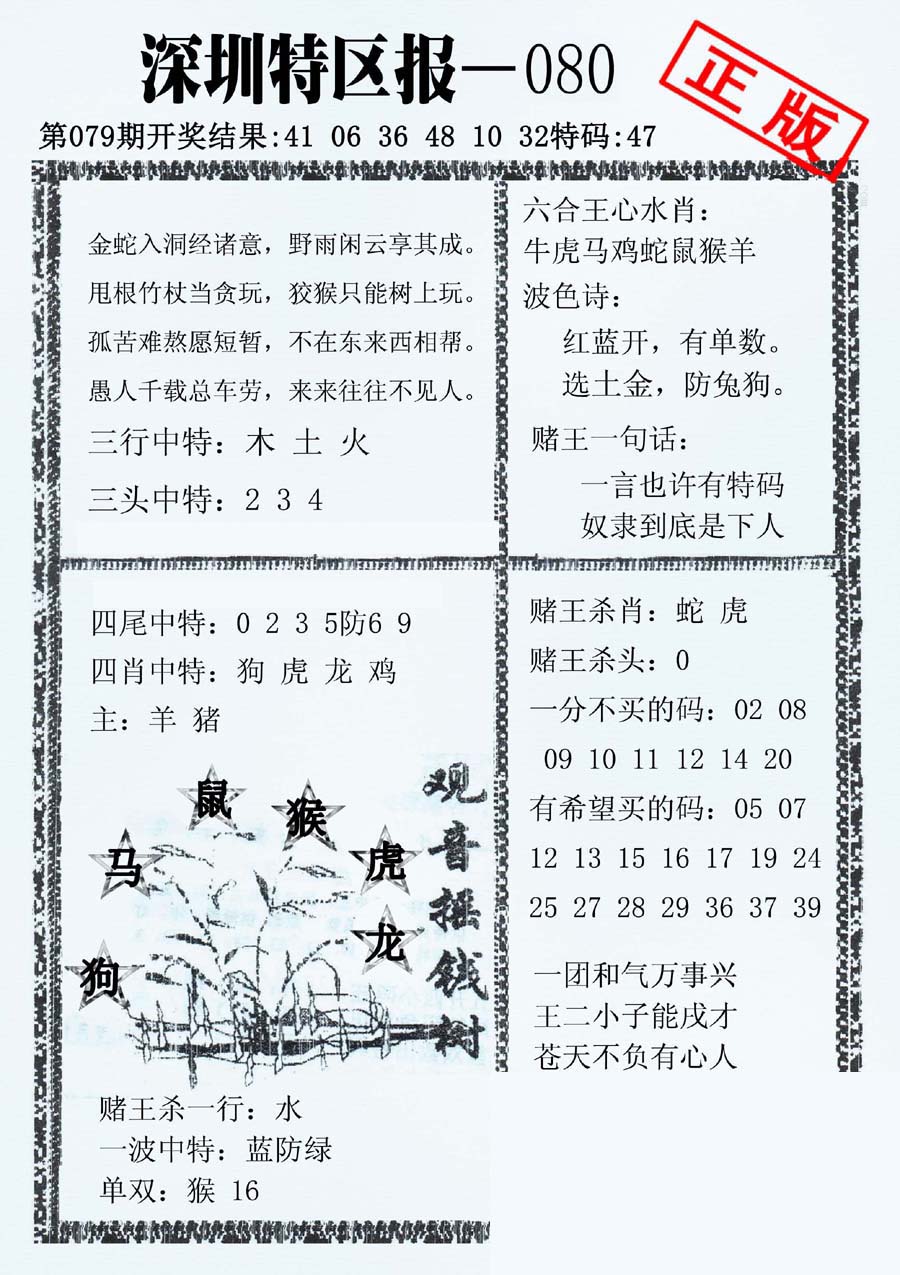 深圳特区报—080
正版
第079期开奖结果:41 06 36 48 10 32特码:47
金蛇入洞经诸意，野雨闲云享其成。
甩根竹杖当贪玩，狡猴只能树上玩。
孤苦难熬愿短暂，不在东来西相帮。
愚人千载总车劳，来来往往不见人。
三行中特：木 土 火
三头中特：2 3 4
六合王心水肖：
牛虎马鸡蛇鼠猴羊
波色诗：
红蓝开，有单数。
选土金，防兔狗。
赌王一句话：
一言也许有特码
奴隶到底是下人
四尾中特：0 2 3 5防6 9
四肖中特：狗 虎 龙 鸡
主：羊 猪
鼠
猴
马
虎
龙
狗
观音摇钱树
赌王杀一行：水
一波中特：蓝防绿
单双：猴 16
赌王杀肖：蛇 虎
赌王杀头：0
一分不买的码：02 08
09 10 11 12 14 20
有希望买的码：05 07
12 13 15 16 17 19 24
25 27 28 29 36 37 39
一团和气万事兴
王二小子能戌才
苍天不负有心人